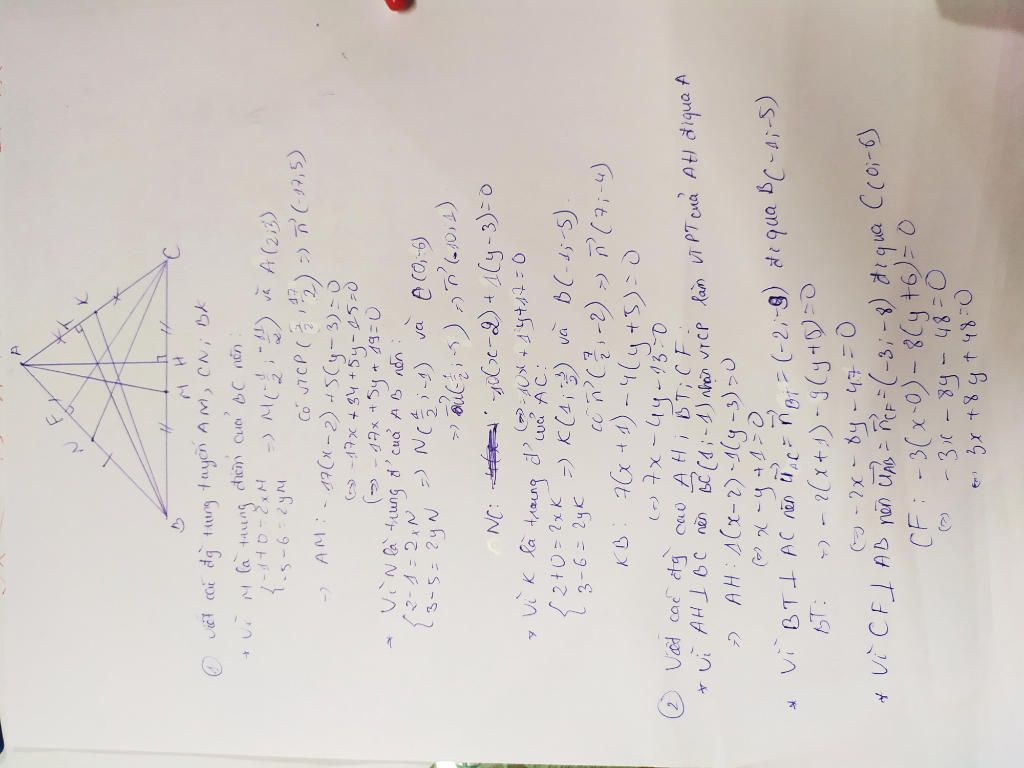 A
F
T
N
K
B
M
H
C
① Viết các đg trung tuyến AM, CN; BK
+ Vì M là trung điểm của BC nên:
{ -1+0 = 2xM
-5-6 = 2yM => M(-1/2; -11/2) và A(2;3)
có VTCP (5/2; 17/2) => n⃗(-17;5)
=> AM: -17(x-2)+5(y-3)=0
(=) -17x+34+5y-15=0
(=) -17x+5y+19=0
* Vì N là trung đ' của AB nên:
{ 2-1 = 2xN
3-5 = 2yN => N(1/2; -1) và C(0;-6)
=> u⃗(1/2; -5) => n⃗(-10;1)
NC: -10(x-2)+1(y-3)=0
(=) -10x+1y+17=0
* Vì K là trung đ' của AC:
{ 2+0 = 2xK
3-6 = 2yK => K(1; 3/2) và B(-1;-5).
có n⃗(7/2; -2) => n⃗(7;-4)
KB: 7(x+1)-4(y+5)=0
(=) 7x-4y-13=0
② Viết các đg cao AH; BT; CF:
* Vì AH⊥BC nên BC⃗(1;-1) nhận VTCP làm VTPT của AH đi qua A
=> AH: 1(x-2)-1(y-3)=0
(=) x-y+1=0
* Vì BT⊥AC nên u⃗AC = n⃗BT = (-2;-9) đi qua B(-1;-5)
BT: => -2(x+1)-9(y+5)=0
(=) -2x-9y-47=0
* Vì CF⊥AB nên u⃗AB = n⃗CF = (-3;-8) đi qua C(0;-6)
CF: -3(x-0)-8(y+6)=0
(=) -3x-8y-48=0
(=) 3x+8y+48=0